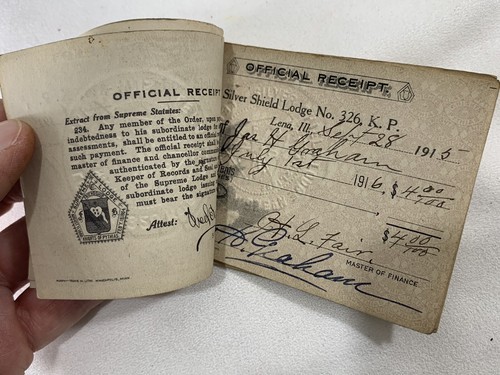 OFFICIAL RECEIPT
Extract from Supreme Statutes:
234. Any member of the Order, upon
indebtedness to his subordinate lodge
assessments, shall be entitled to an official
such payment. The official receipt
master of finance and chancellor
authenticated by the signature
Keeper of Records and Seal
of the Supreme Lodge and
subordinate lodge issuing
must bear the
Attest:
KNIGHTS OF PYTHIAS
OFFICIAL RECEIPT.
Silver Shield Lodge No. 326, K. P.
Lena, Ill., Sept 28 1915
Jas H Graham
July 1st 1916 $4.00
$4.00
H. L. Fair.
MASTER OF FINANCE.
Graham